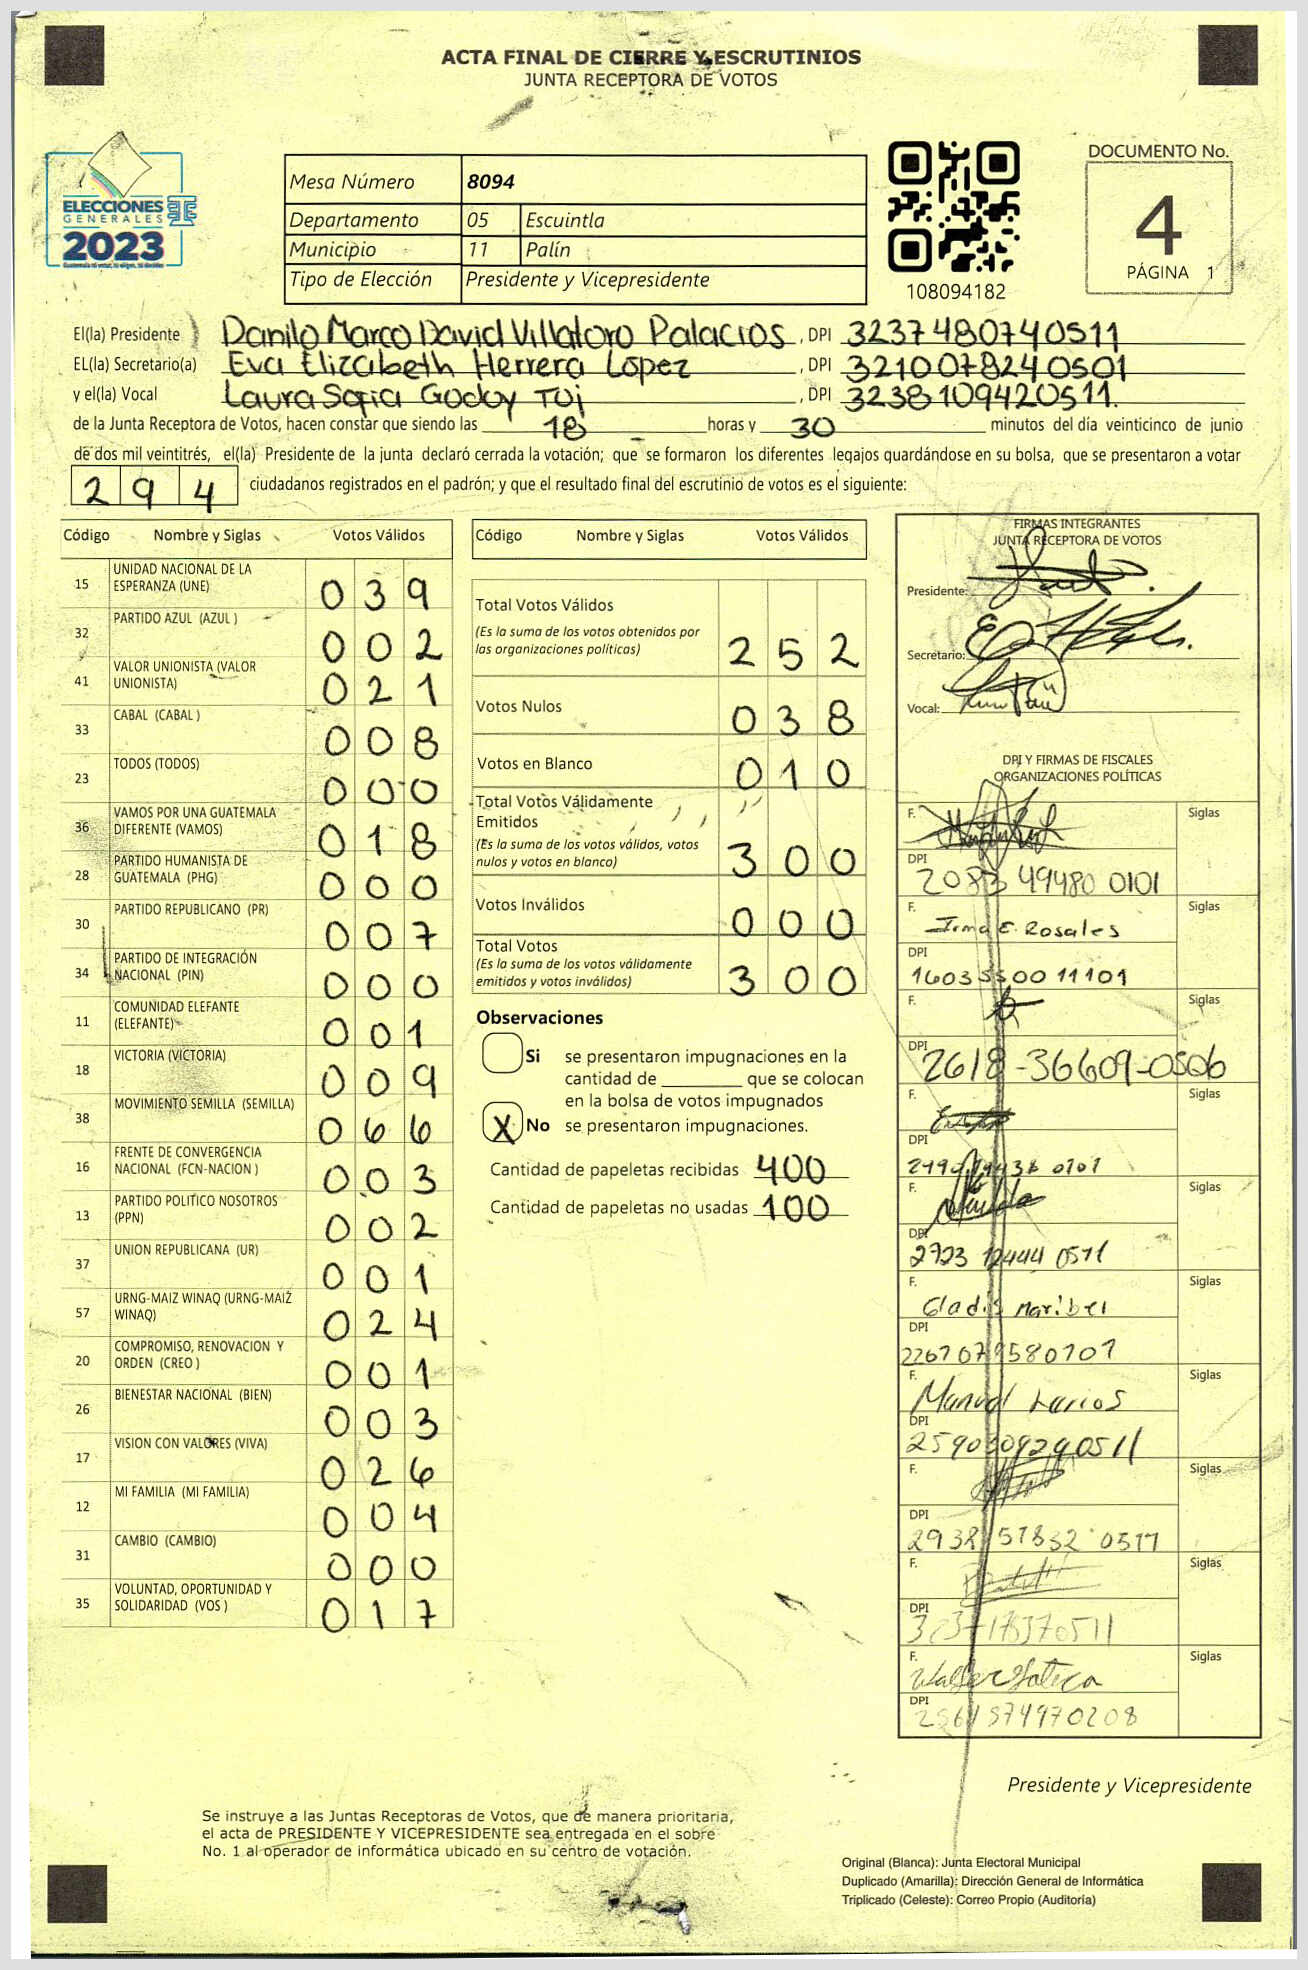 ACTA FINAL DE CIERRE Y ESCRUTINIOS
JUNTA RECEPTORA DE VOTOS
ELECCIONES
GENERALES
2023
Mesa Número 8094
Departamento 05 Escuintla
Municipio 11 Palín
Tipo de Elección Presidente y Vicepresidente
108094182
DOCUMENTO No.
4
PÁGINA 1
El(la) Presidente Danilo Marco David Villatoro Palacios, DPI 3237480740511
EL(la) Secretario(a) Eva Elizabeth Herrera López, DPI 3210078240501
y el(la) Vocal Laura Sofia Godoy Tuj, DPI 3238109420511.
de la Junta Receptora de Votos, hacen constar que siendo las 18 horas y 30 minutos del día veinticinco de junio
de dos mil veintitrés, el(la) Presidente de la junta declaró cerrada la votación; que se formaron los diferentes legajos guardándose en su bolsa, que se presentaron a votar
294 ciudadanos registrados en el padrón; y que el resultado final del escrutinio de votos es el siguiente:
Código Nombre y Siglas Votos Válidos
15 UNIDAD NACIONAL DE LA ESPERANZA (UNE) 039
32 PARTIDO AZUL (AZUL ) 002
41 VALOR UNIONISTA (VALOR UNIONISTA) 021
33 CABAL (CABAL ) 008
23 TODOS (TODOS) 000
36 VAMOS POR UNA GUATEMALA DIFERENTE (VAMOS) 018
28 PARTIDO HUMANISTA DE GUATEMALA (PHG) 000
30 PARTIDO REPUBLICANO (PR) 007
34 PARTIDO DE INTEGRACIÓN NACIONAL (PIN) 000
11 COMUNIDAD ELEFANTE (ELEFANTE) 001
18 VICTORIA (VICTORIA) 009
38 MOVIMIENTO SEMILLA (SEMILLA) 066
16 FRENTE DE CONVERGENCIA NACIONAL (FCN-NACION ) 003
13 PARTIDO POLITICO NOSOTROS (PPN) 002
37 UNION REPUBLICANA (UR) 001
57 URNG-MAIZ WINAQ (URNG-MAIZ WINAQ) 024
20 COMPROMISO, RENOVACION Y ORDEN (CREO ) 001
26 BIENESTAR NACIONAL (BIEN) 003
17 VISION CON VALORES (VIVA) 026
12 MI FAMILIA (MI FAMILIA) 004
31 CAMBIO (CAMBIO) 000
35 VOLUNTAD, OPORTUNIDAD Y SOLIDARIDAD (VOS ) 017
Código Nombre y Siglas Votos Válidos
Total Votos Válidos
(Es la suma de los votos obtenidos por
las organizaciones políticas) 252
Votos Nulos 038
Votos en Blanco 010
Total Votos Válidamente
Emitidos
(Es la suma de los votos válidos, votos
nulos y votos en blanco) 300
Votos Inválidos 000
Total Votos
(Es la suma de los votos válidamente
emitidos y votos inválidos) 300
Observaciones
Si se presentaron impugnaciones en la
cantidad de ________ que se colocan
en la bolsa de votos impugnados
X No se presentaron impugnaciones.
Cantidad de papeletas recibidas 400
Cantidad de papeletas no usadas 100
FIRMAS INTEGRANTES
JUNTA RECEPTORA DE VOTOS
Presidente:
Secretario:
Vocal:
DPI Y FIRMAS DE FISCALES
ORGANIZACIONES POLÍTICAS
F. Siglas
DPI
2083 49480 0101
F. Irma E. Rosales Siglas
DPI
F. Siglas
DPI
2618-36609-0506
F. Siglas
DPI
F. Siglas
DPI
2723 12444 0511
F. Gladis Maribel Siglas
DPI
F. Manuel Larios Siglas
DPI
F. Siglas
DPI
F. Siglas
DPI
F. Siglas
DPI
Presidente y Vicepresidente
Se instruye a las Juntas Receptoras de Votos, que de manera prioritaria,
el acta de PRESIDENTE Y VICEPRESIDENTE sea entregada en el sobre
No. 1 al operador de informática ubicado en su centro de votación.
Original (Blanca): Junta Electoral Municipal
Duplicado (Amarilla): Dirección General de Informática
Triplicado (Celeste): Correo Propio (Auditoría)